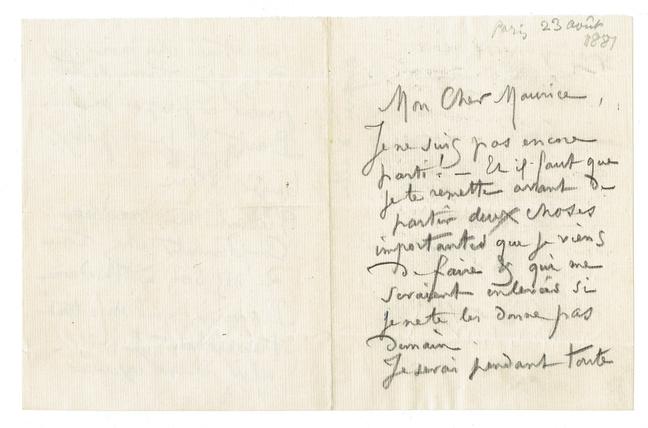 Paris 23 août
1881
Mon Cher Maurice,
Je ne suis pas encore
parti! – Et il faut que
je te remette avant de
partir deux choses
importantes que je viens
de faire & qui me
seraient enlevées si
je ne te les donne pas
Demain
Je serai pendant toute